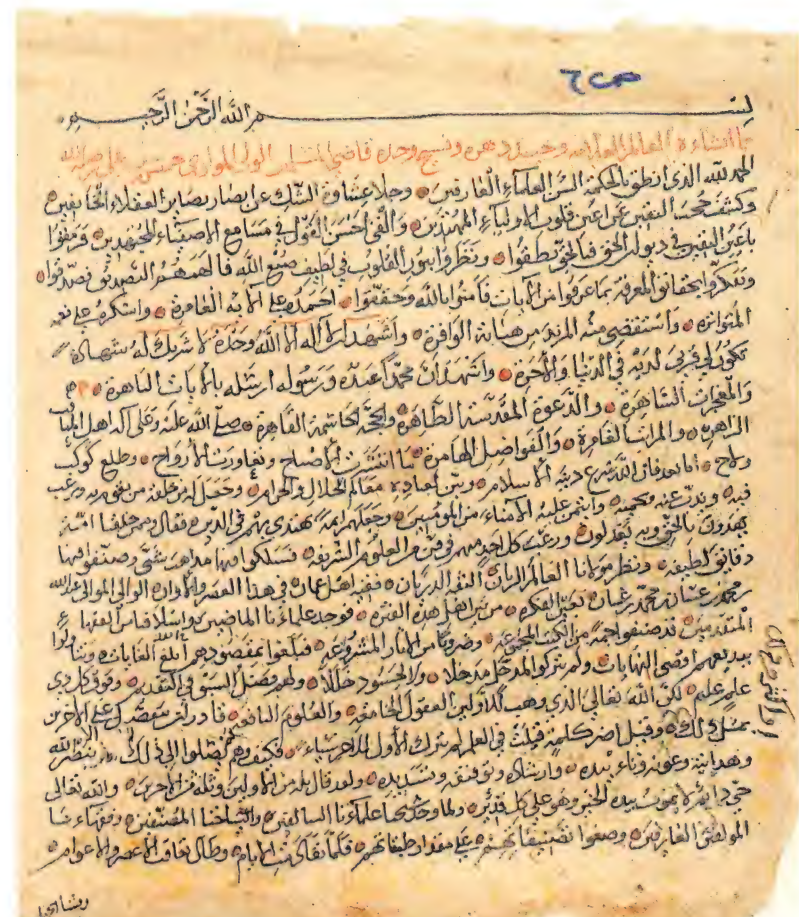 ص٢
بسم الله الرحمن الرحيم
مما انشاءه العالم العلامه وحيد دهره ونسيج وحده قاضي المسلمين الولي الموازي خميس بن علي رحمه الله
الحمد لله الذي انطق بالحكمة السن العلماء العارفين وجلا عشاوة الشك عن ابصار بصاير العقلاء الخايفين
وكشف حجب اليقين عن اعين قلوب الاولياء المهتدين والقى احسن القول في مسامع الاصفياء المجتهدين فرمقوا
باعين اليقين في ديوان الحق فبالحق نطقوا ونظروا بنور القلوب في لطيف صنع الله فالهمهم التصديق فصدقوا
وتفكروا بحقايق المعرفة بما عرفوا من الايات فآمنوا بالله وحققوا احمده على آلايه الغامرة واشكره على نعمه
المتواترة واستفضي منه المزيد من هباته الوافرة واشهد ان لا اله الا الله وحده لا شريك له شهادة
تكون لي قربى لديه في الدنيا والآخرة واشهد ان محمدا عبده ورسوله ارسله بالايات الباهرة
والمعجرات الشاهرة والدعوة المقدسة الطاهرة والحجة الحاسمة القاهرة صلى الله عليه وعلى آله اهل
الزاهرة والمراتب الغامرة والفواضل الهامرة ما انتشرت الاصباح وتغاورت الارواح وطلع كوكب
ولاح اما بعد فان الله شرع دينه الاسلام وبين لعباده معالم الحلال والحرام وجعل له من خلقه من يقوم به ويرغب
فيه ويذب عنه ويحميه وايتمن عليه الامناء من المومنين وجعلهم ايمة يهتدي بهم في الدين فقال وممن خلقنا امة
يهدون بالحق وبه يعدلون ورغب كل احد منهم في فن من العلوم الشريفة فسلكوا فيها مذاهب شتى وصنفوا فيها
دقايق لطيفة ونظر مولانا العالم الرباني الثقة فقيه اهل عمان في هذا العصر والاوان الوالي الموالي عبد الله
بن محمد بن غسان بن محمد بن غسان بعين الفكر من بين اهل هذه الفترة فوجد علماءنا الماضين واسلافنا من الفقهاء
المتقدمين قد صنفوا جمة من الكتب المجموعة وضروبا من الآثار المشروعة فبلغوا بمقصودهم ابلغ الغايات ونالوا
ببديعهم اقصى النهايات ولم يتركوا لمدخل مدخلا ولا لحسود خللا ولهم فضل السبق في المتقدم وفوق كل ذي
علم عليم لكن الله تعالى الذي وهب للاولين العقول الجامعة والعلوم النافعة قادر ان يتفضل على الآخرين
بمثل ذلك وقيل اضر كلمة قيلت في العلم لم يترك الأول للآخر شياء
وهدايته وعونه وارشاده وتوفيقه وتسديده ولقد قال ثلة من الاولين وثلة من الآخرين والله تعالى
حي دايم لا يموت بيده الخير وهو على كل شيء قدير ولما وجد علماءنا السالفين واشياخنا المصنفين وفقهاءنا
المولفين العارفين وصفوا تصنيفاتهم على مقدار طبقاتهم فلما تفانت الايام وطال تعاقب الاعصر والاعوام